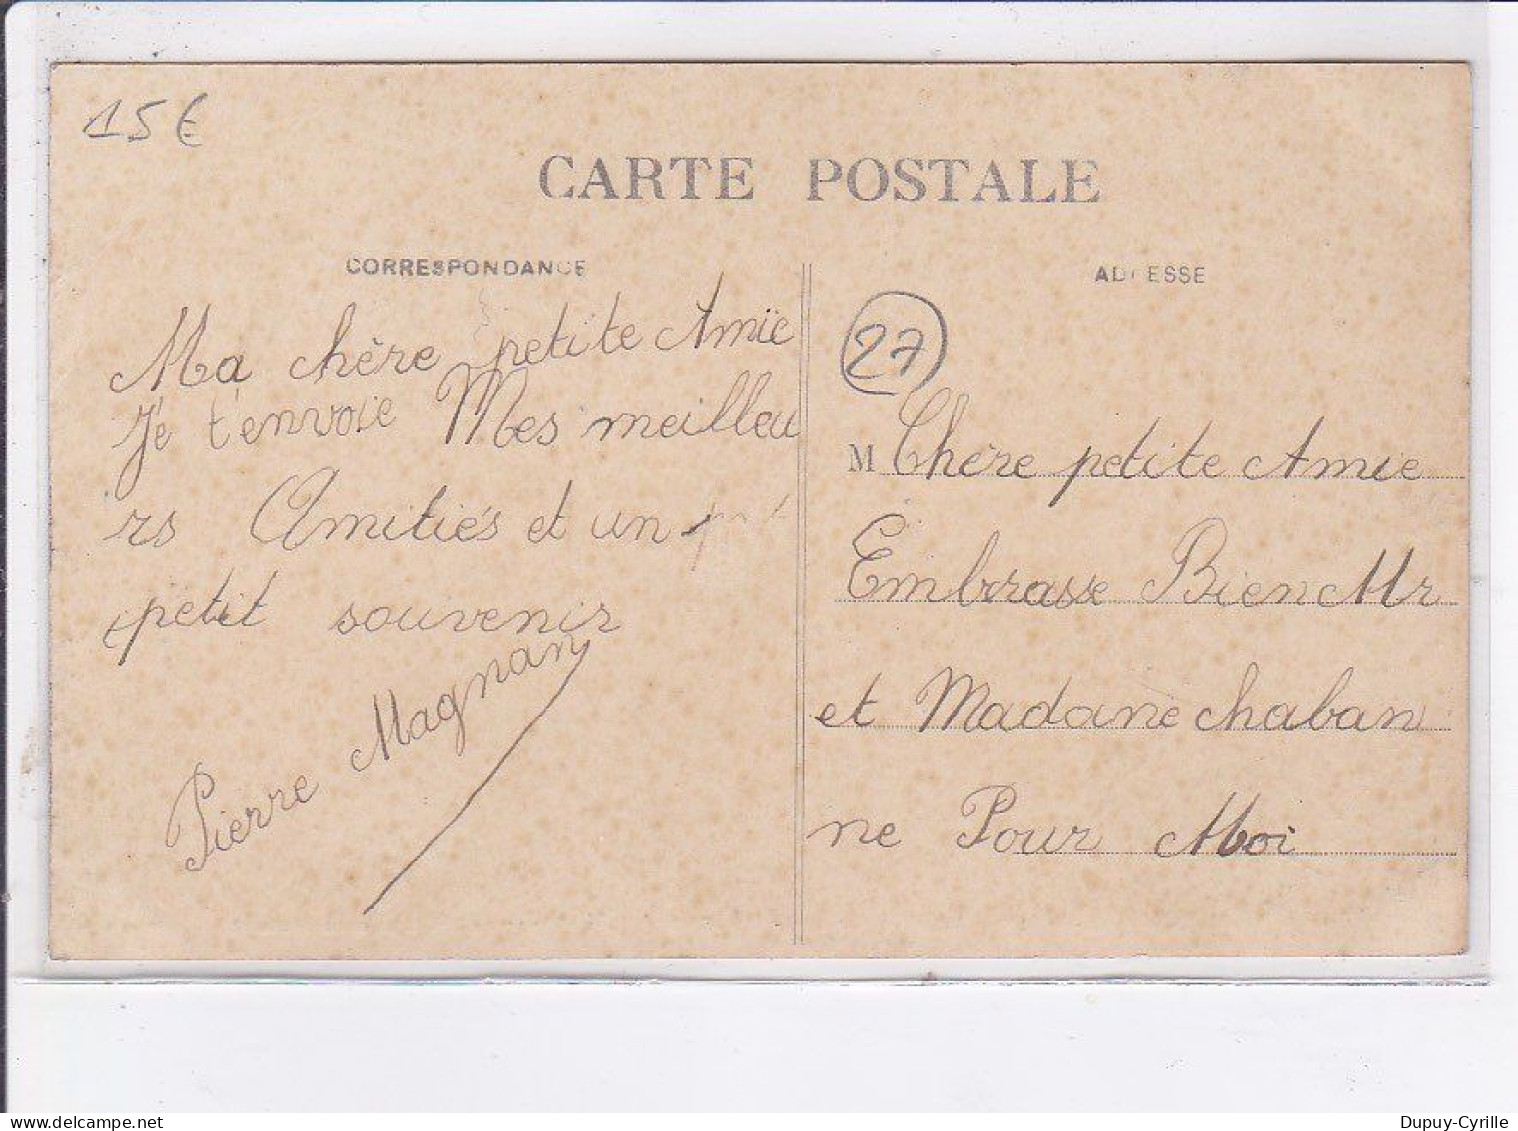 15€
CARTE POSTALE
CORRESPONDANCE
Ma chère petite Amie
Je t'envoie Mes meilleu
rs Amitiés et un
petit souvenir
Pierre Magnan
ADRESSE
27
M Chère petite Amie
Embrasse Bien Mr
et Madame chaban
ne Pour Moi
Dupuy-Cyrille